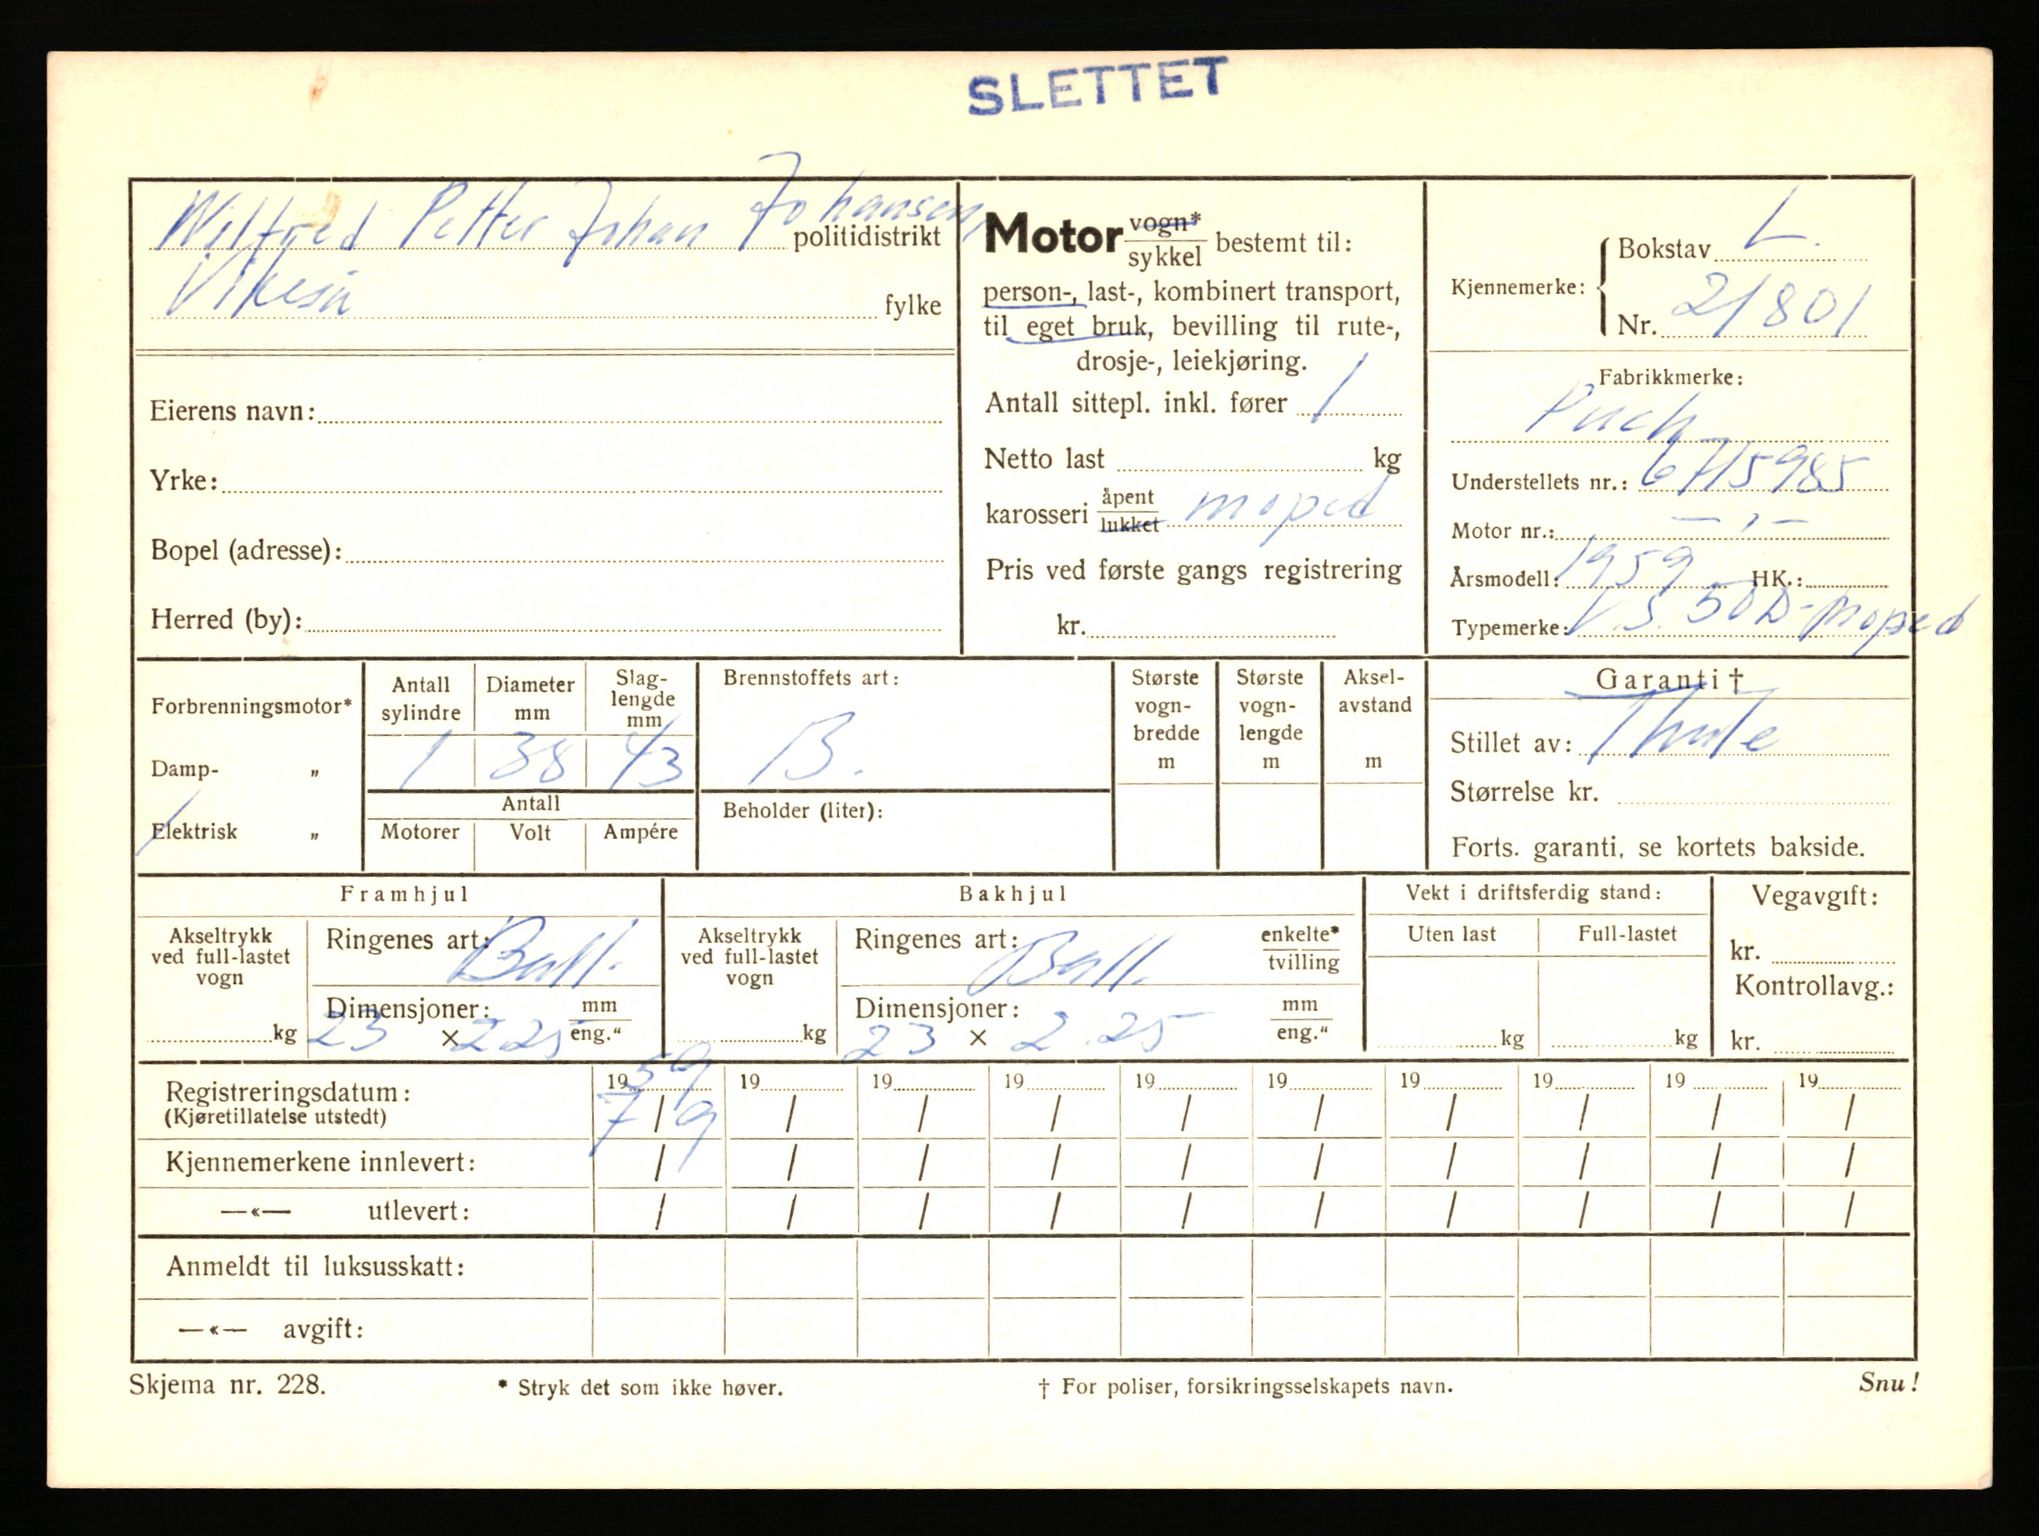 SLETTET
Wilfred Petter Johan Johansen, politidistrikt
Vikeså fylke
Eierens navn:
Yrke:
Bopel (adresse):
Herred (by):
Motor vogn* sykkel bestemt til:
person-, last-, kombinert transport,
til eget bruk, bevilling til rute-,
drosje-, leiekjøring.
Antall sittepl. inkl. fører 1
Netto last kg
karosseri åpent lukket moped
Pris ved første gangs registrering
kr.
Kjennemerke: Bokstav L.
Nr. 21801
Fabrikkmerke:
Puch
Understellets nr.: 6715985
Motor nr.: — , —
Årsmodell: 1959 HK.:
Typemerke: V.S. 50 D-moped
Forbrenningsmotor*
Damp- „
Elektrisk „
Antall sylindre
Diameter mm
Slag-lengde mm
1 38 43
Antall
Motorer Volt Ampére
Brennstoffets art:
B.
Beholder (liter):
Største vogn-bredde m
Største vogn-lengde m
Aksel-avstand m
Garanti †
Stillet av: Thule
Størrelse kr.
Forts. garanti, se kortets bakside.
Framhjul
Akseltrykk ved full-lastet vogn
kg
Ringenes art: Ball.
Dimensjoner: mm eng."
23 × 2.25
Bakhjul
Akseltrykk ved full-lastet vogn
kg
Ringenes art: Ball. enkelte* tvilling
Dimensjoner: mm eng."
23 × 2.25
Vekt i driftsferdig stand:
Uten last Full-lastet
kg kg
Vegavgift:
kr.
Kontrollavg.:
kr.
Registreringsdatum: 1959 19 19 19 19 19 19 19 19 19
(Kjøretillatelse utstedt) 7/9 / / / / / / / / /
Kjennemerkene innlevert: / / / / / / / / / /
—«— utlevert: / / / / / / / / / /
Anmeldt til luksusskatt:
—«— avgift:
Skjema nr. 228. * Stryk det som ikke høver. † For poliser, forsikringsselskapets navn. Snu!